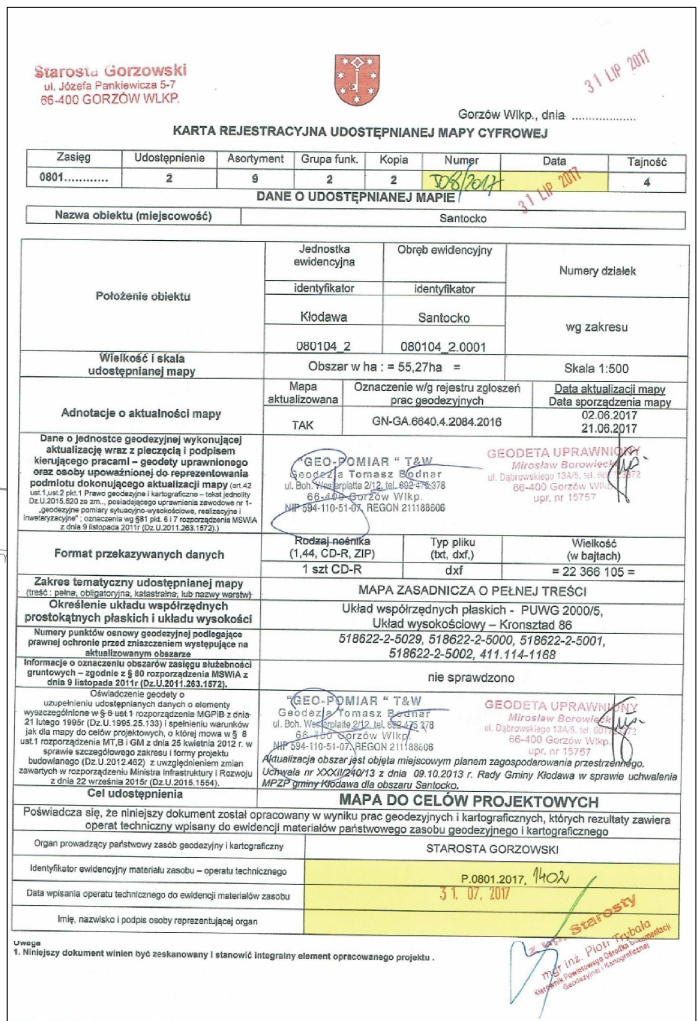 Starosta Gorzowski
ul. Józefa Pankiewicza 5-7
66-400 GORZÓW WLKP.
31 LIP 2017
Gorzów Wlkp., dnia ..................
KARTA REJESTRACYJNA UDOSTĘPNIANEJ MAPY CYFROWEJ
Zasięg Udostępnienie Asortyment Grupa funk. Kopia Numer Data Tajność
0801............ 2 9 2 2 508/2017 31 LIP 2017 4
DANE O UDOSTĘPNIANEJ MAPIE
Nazwa obiektu (miejscowość) Santocko
Położenie obiektu
Jednostka ewidencyjna Obręb ewidencyjny Numery działek
identyfikator identyfikator
Kłodawa Santocko wg zakresu
080104_2 080104_2.0001
Wielkość i skala
udostępnianej mapy
Obszar w ha : = 55,27ha = Skala 1:500
Adnotacje o aktualności mapy
Mapa aktualizowana Oznaczenie w/g rejestru zgłoszeń prac geodezyjnych Data aktualizacji mapy
Data sporządzenia mapy
TAK GN-GA.6640.4.2084.2016 02.06.2017
21.06.2017
Dane o jednostce geodezyjnej wykonującej
aktualizację wraz z pieczęcią i podpisem
kierującego pracami – geodety uprawnionego
oraz osoby upoważnionej do reprezentowania
podmiotu dokonującego aktualizacji mapy (art.42
ust.1,ust.2 pkt.1 Prawo geodezyjne i kartograficzne – tekst jednolity
Dz.U.2015.520 ze zm., posiadającego uprawnienia zawodowe nr 1-
„geodezyjne pomiary sytuacyjno-wysokościowe, realizacyjne i
inwetaryzacyjne" ; oznaczenia wg §81 pkt. 6 i 7 rozporządzenia MSWiA
z dnia 9 listopada 2011r (Dz.U.2011.263.1572).)
"GEO-POMIAR " T&W
Geodezja Tomasz Bodnar
ul. Boh. Westerplatte 2/12, tel. 692 476 378
66-400 Gorzów Wlkp.
NIP 594-110-51-07, REGON 211188606
GEODETA UPRAWNIONY
Mirosław Borowiecki
ul. Dąbrowskiego 13A/5, tel.
66-400 GORZÓW Wlkp.
upr. nr 15757
Format przekazywanych danych
Rodzaj nośnika
(1,44, CD-R, ZIP)
Typ pliku
(txt, dxf,)
Wielkość
(w bajtach)
1 szt CD-R dxf = 22 366 105 =
Zakres tematyczny udostępnianej mapy
(treść : pełna, obligatoryjna, katastralna, lub nazwy warstw)
MAPA ZASADNICZA O PEŁNEJ TREŚCI
Określenie układu współrzędnych
prostokątnych płaskich i układu wysokości
Układ współrzędnych płaskich - PUWG 2000/5,
Układ wysokościowy – Kronsztad 86
Numery punktów osnowy geodezyjnej podlegające
prawnej ochronie przed zniszczeniem występujące na
aktualizowanym obszarze
518622-2-5029, 518622-2-5000, 518622-2-5001,
518622-2-5002, 411.114-1168
Informacje o oznaczeniu obszarów zasięgu służebności
gruntowych – zgodnie z § 80 rozporządzenia MSWiA z
dnia 9 listopada 2011r (Dz.U.2011.263.1572).
nie sprawdzono
Oświadczenie geodety o
uzupełnieniu udostępnianych danych o elementy
wyszczególnione w § 6 ust.1 rozporządzenie MGPIB z dnia
21 lutego 1995r (Dz.U.1995.25.133) i spełnieniu warunków
jak dla mapy do celów projektowych, o której mowa w § 8
ust.1 rozporządzenia MT,B i GM z dnia 25 kwietnia 2012 r. w
sprawie szczegółowego zakresu i formy projektu
budowlanego (Dz.U.2012.462) z uwzględnieniem zmian
zawartych w rozporządzeniu Ministra Infrastruktury i Rozwoju
z dnia 22 września 2015r (Dz.U.2015.1554).
"GEO-POMIAR " T&W
Geodezja Tomasz Bodnar
ul. Boh. Westerplatte 2/12, tel. 692 476 378
66-400 Gorzów Wlkp.
NIP 594-110-51-07, REGON 211188606
GEODETA UPRAWNIONY
Mirosław Borowiecki
ul. Dąbrowskiego 13A/5, tel.
66-400 GORZÓW Wlkp.
upr. nr 15757
Aktualizacja obszar jest objęta miejscowym planem zagospodarowania przestrzennego.
Uchwała nr XXXII/240/13 z dnia 09.10.2013 r. Rady Gminy Kłodawa w sprawie uchwalenia
MPZP gminy Kłodawa dla obszaru Santocko.
Cel udostępnienia MAPA DO CELÓW PROJEKTOWYCH
Poświadcza się, że niniejszy dokument został opracowany w wyniku prac geodezyjnych i kartograficznych, których rezultaty zawiera
operat techniczny wpisany do ewidencji materiałów państwowego zasobu geodezyjnego i kartograficznego
Organ prowadzący państwowy zasób geodezyjny i kartograficzny STAROSTA GORZOWSKI
Identyfikator ewidencyjny materiału zasobu – operatu technicznego P.0801.2017, 1402
Data wpisania operatu technicznego do ewidencji materiałów zasobu 31. 07. 2017
Imię, nazwisko i podpis osoby reprezentującej organ
Starosty
mgr inż. Piotr Trybała
Kierownik Powiatowego Ośrodka Dokumentacji
Geodezyjnej i Kartograficznej
Uwaga
1. Niniejszy dokument winien być zeskanowany i stanowić integralny element opracowanego projektu .